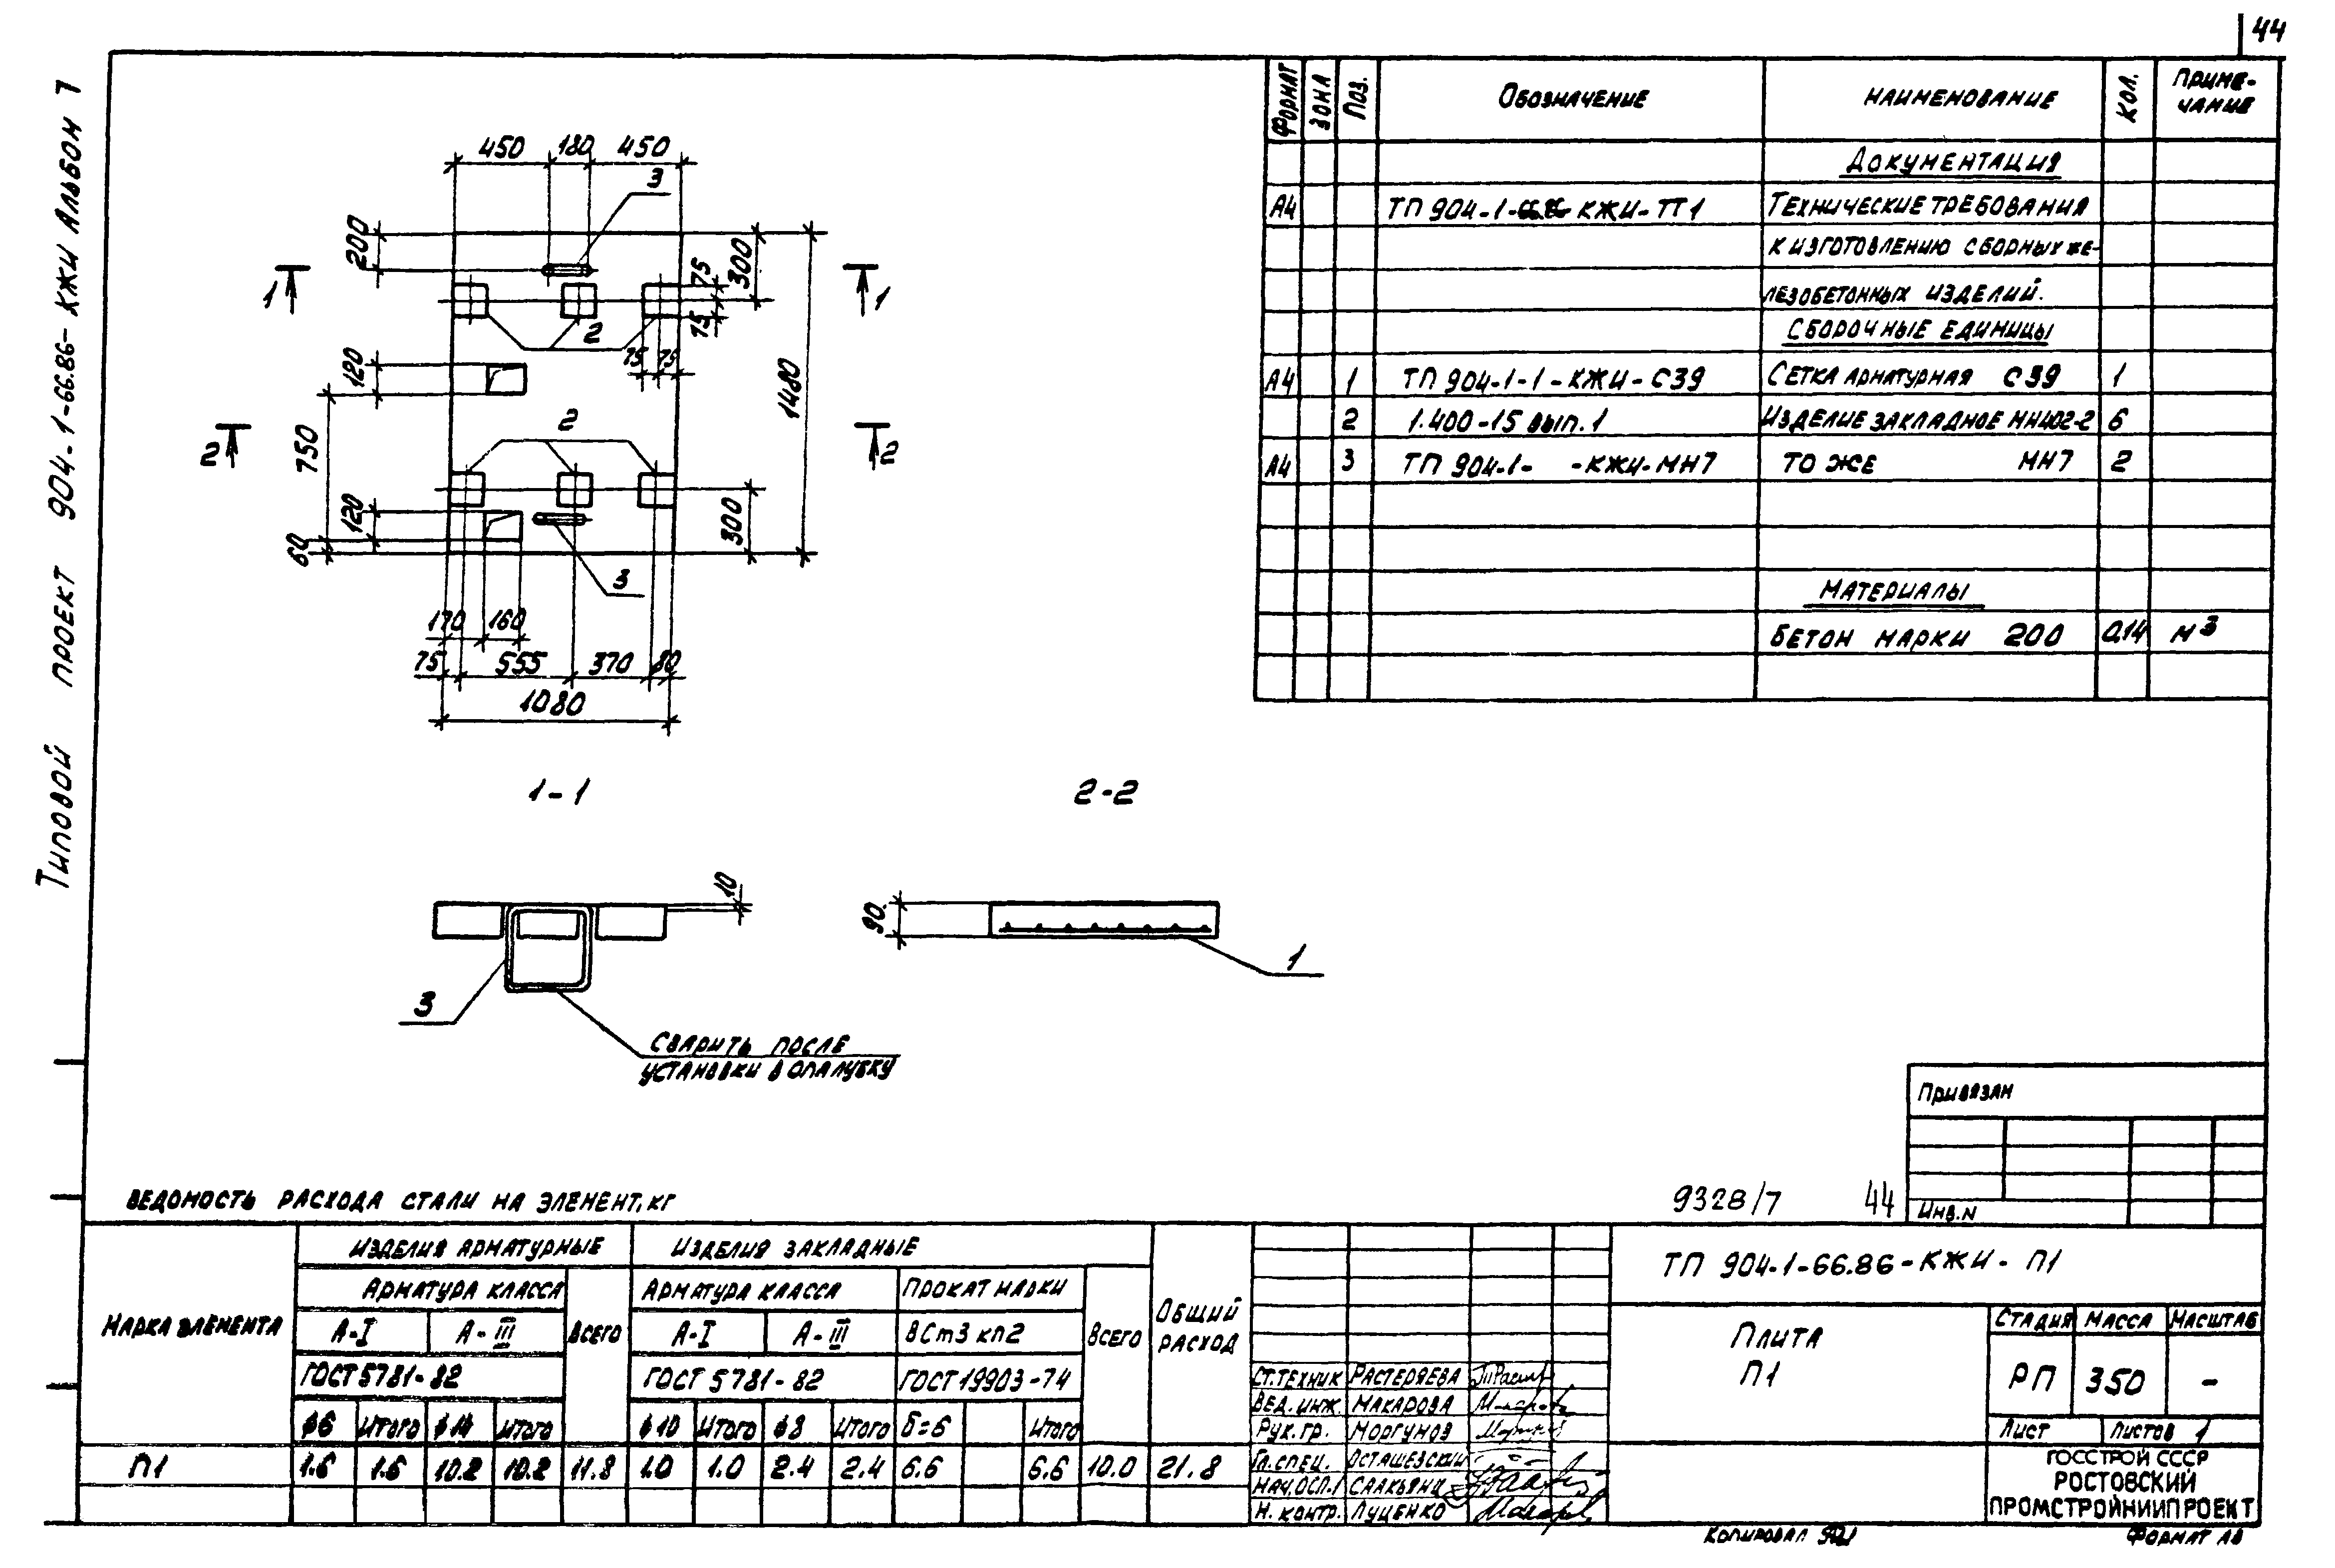 44
Типовой проект 904-1-66.86-КЖИ Альбом 7
450 180 450
3
200
300
75
75
1 1
2
75 75
120
1480
750
2
2 2
120
300
60
3
170 160
75 555 370 80
1080
1-1
2-2
10
90
3
1
Сварить после
установки в опалубку
Формат Зона Поз. Обозначение Наименование Кол. Приме-
чание
Документация
А4 ТП 904-1-66.86-КЖИ-ТТ1 Технические требования
к изготовлению сборных же-
лезобетонных изделий.
Сборочные единицы
А4 1 ТП 904-1-1-КЖИ-С39 Сетка арматурная С39 1
2 1.400-15 вып.1 Изделие закладное МН402-2 6
А4 3 ТП 904-1- -КЖИ-МН7 То же МН7 2
Материалы
Бетон марки 200 0,14 м3
Привязан
Инв.N
9328/7 44
Ведомость расхода стали на элемент, кг
Марка элемента Изделия арматурные Изделия закладные Общий
расход
Арматура класса Всего Арматура класса Прокат марки Всего
А-I А-III А-I А-III ВСт3 кп2
ГОСТ 5781-82 ГОСТ 5781-82 ГОСТ 19903-74
ϕ6 Итого ϕ14 Итого ϕ10 Итого ϕ8 Итого δ=6 Итого
П1 1.6 1.6 10.2 10.2 11.8 1.0 1.0 2.4 2.4 6.6 6.6 10.0 21.8
ТП 904-1-66.86-КЖИ-П1
Плита
П1
Стадия Масса Масштаб
РП 350 -
Лист Листов 1
Ст.техник Растеряева
Вед.инж. Макарова
Рук.гр. Моргунов
Гл.спец. Осташевский
Нач.ОСП-1 Саакьянц
Н.контр. Луценко
ГОССТРОЙ СССР
РОСТОВСКИЙ
ПРОМСТРОЙНИИПРОЕКТ
Копировал
Формат А3